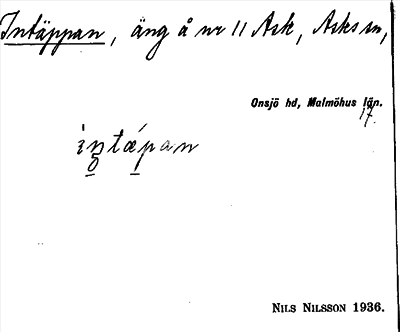 Intäppan, äng å nr 11 Ask, Asks sn,
Onsjö hd, Malmöhus län.
17.
iŋtǽpan
NILS NILSSON 1936.